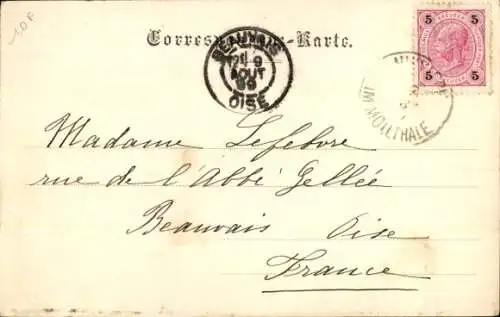 10F
Correspondenz-Karte.
BEAUVAIS
9
AOUT
99
OISE
5 5
5 5
IM MÖLLTHALE
Madame Lefebvre
rue de l'Abbé Gellée
Beauvais Oise
France